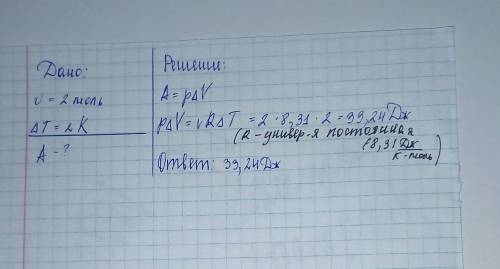 Дано:
ν = 2 моль
ΔT = 2 K
A - ?
Решение:
A = pΔV
pΔV = νRΔT = 2 · 8,31 · 2 = 33,24 Дж
(R - универ-я постоянная
(8,31 Дж/К·моль)
Ответ: 33,24 Дж